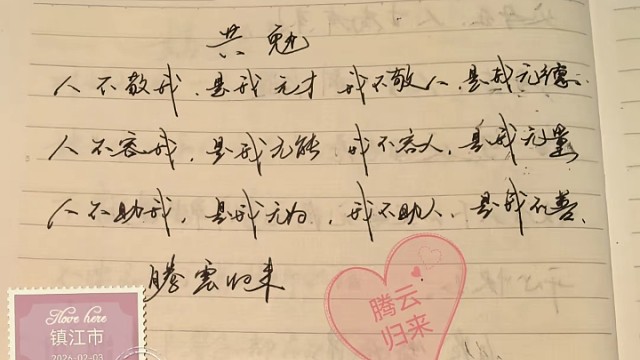 共勉
人不敬我，是我无才 我不敬人，是我无德.
人不容我，是我无能 我不容人，是我无量
人不助我，是我无为，我不助人，是我不善.
腾云归来
腾云
归来
I love here
镇江市
2026-02-03